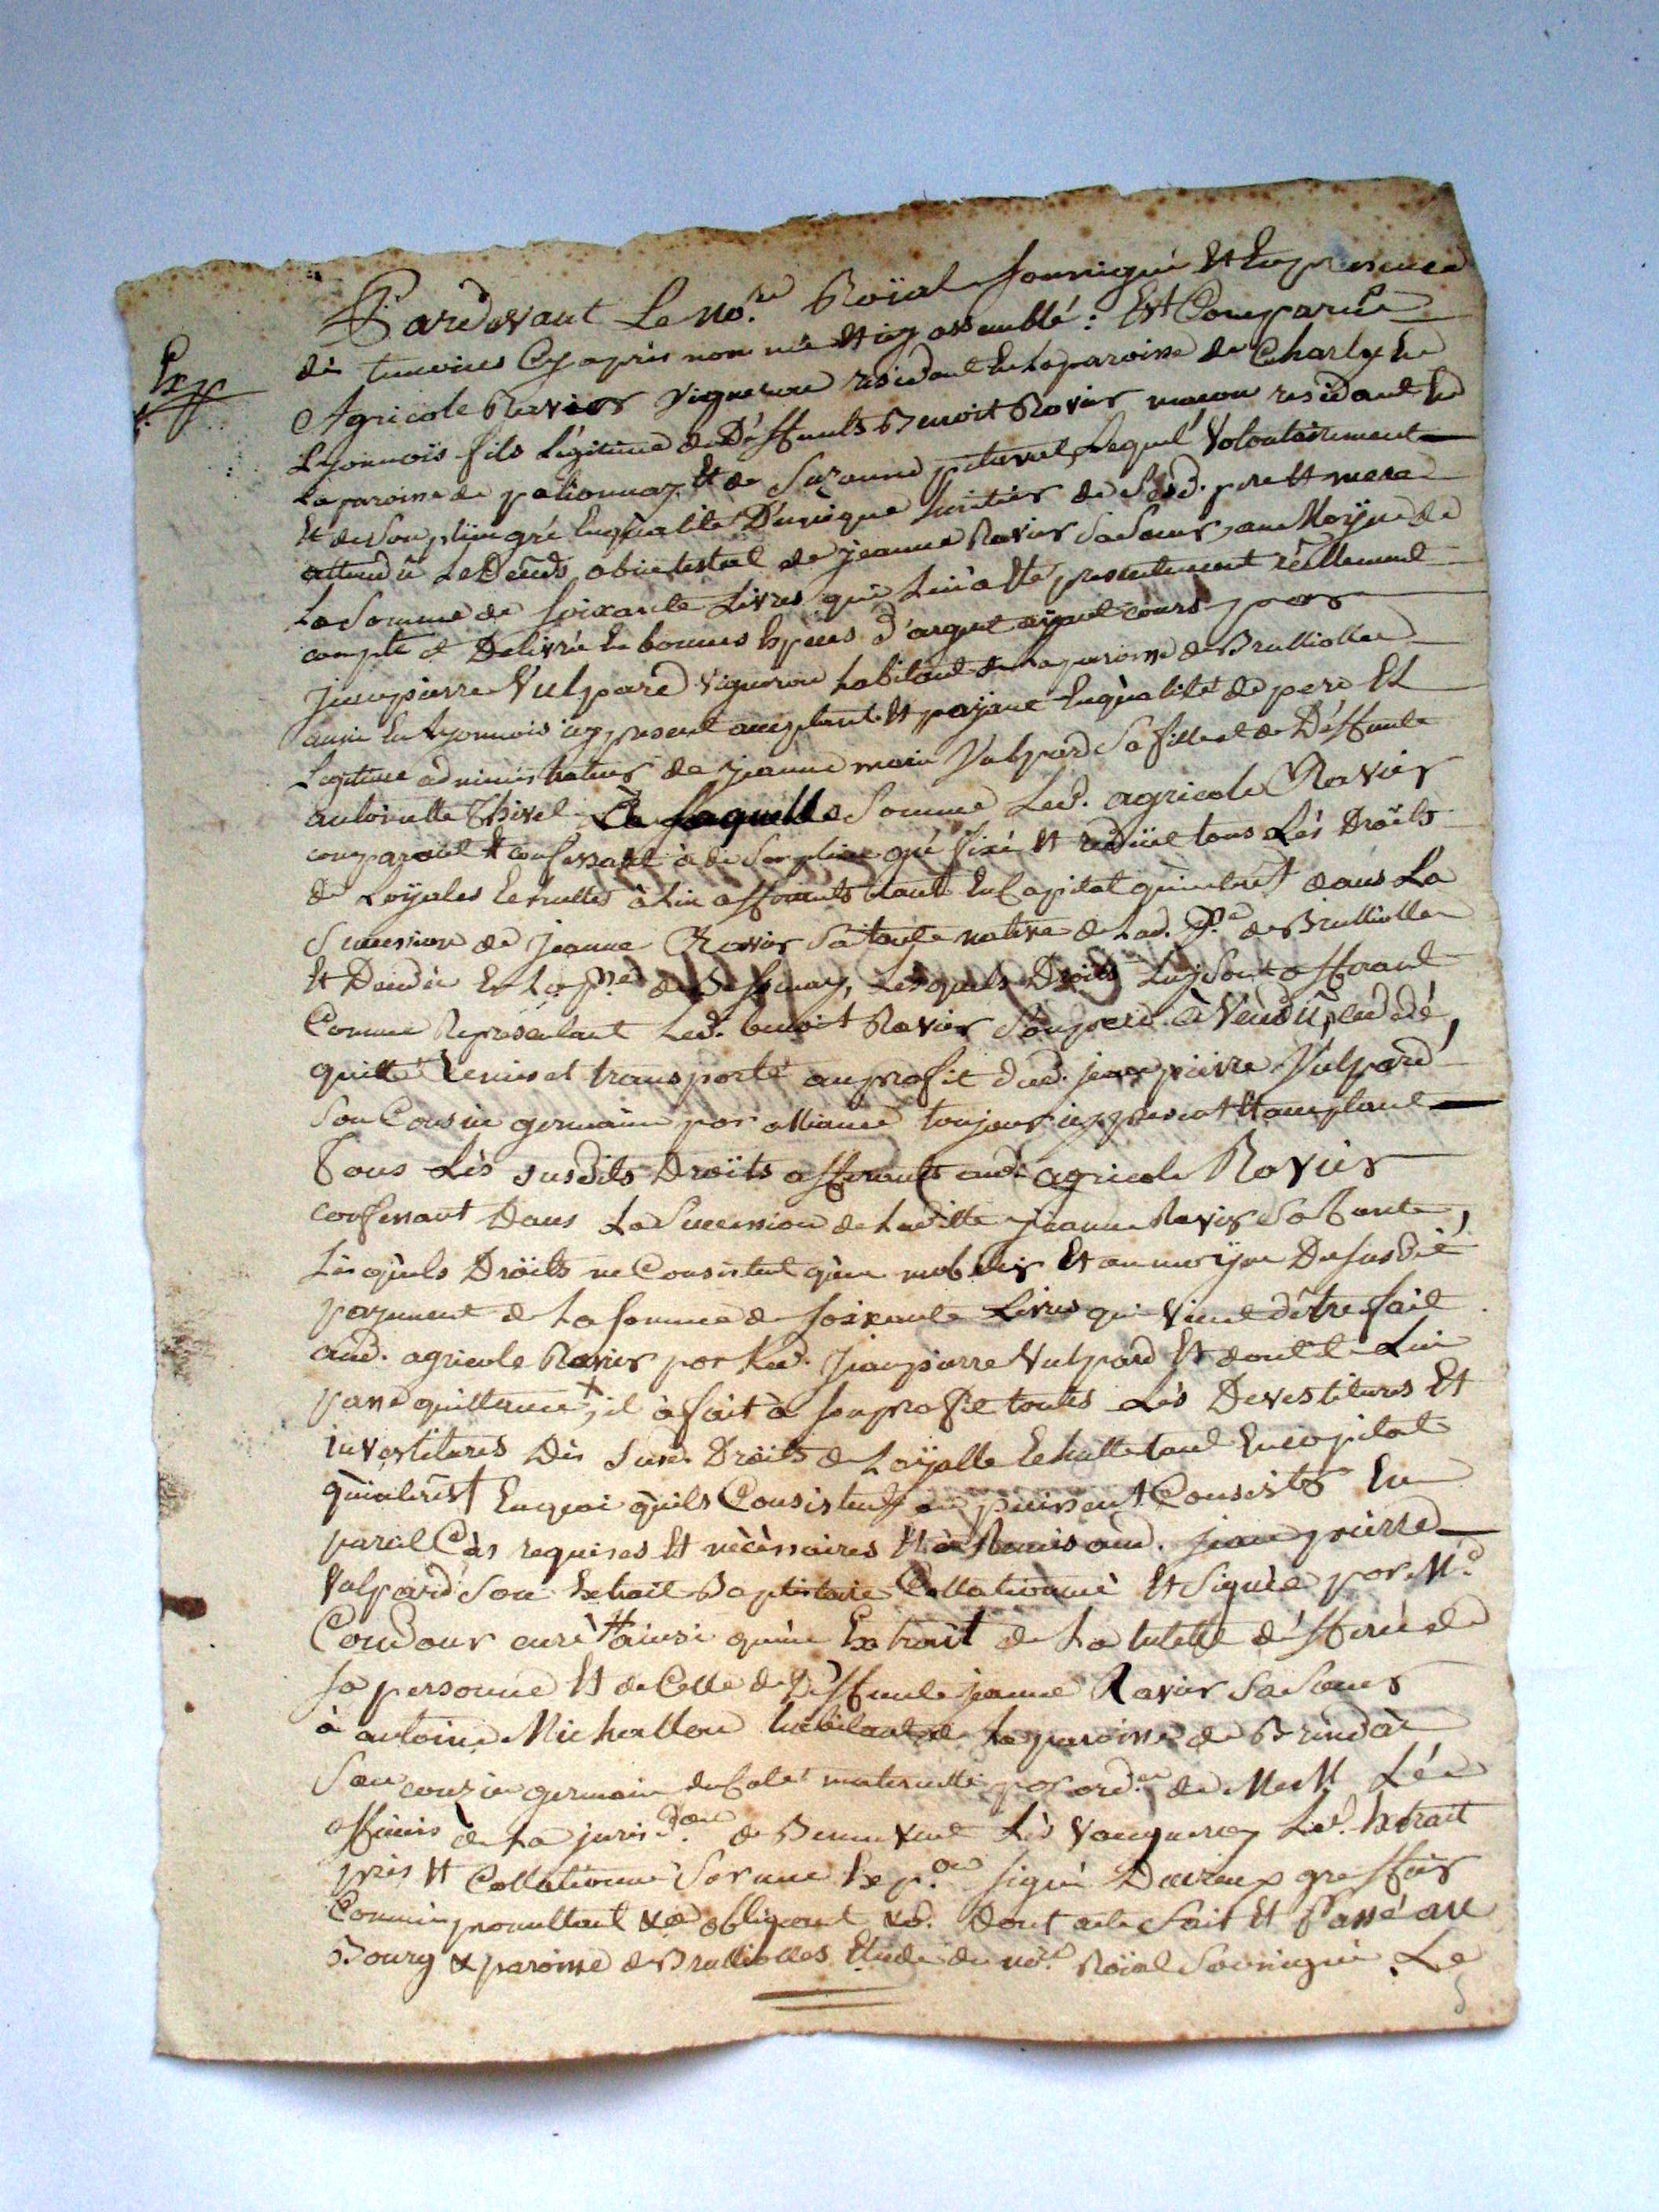 Exp
Pardevant Le no.re Roïal soussigné Et En presence
dès temoins Cy après nommé Et icy assemblé : Est Comparue
Agricole Ravier vigneron résidant En la paroisse de Charly En
Lyonnois fils Légitime de Déffunts Benoit Ravier macon residant En
la paroisse de polionnay Et de Suzanne pitaval, Lequel Volontairement
Et de Son plein gré En qualité D'unique heritier de Sesd. pere Et mere
attendû Le Décès abintestat de jeanne Ravier Sa Sœur, au Moÿen de
La Somme de soixante Livres qui Lui à été présentement réellement
compté et Delivré En bonnes Espèces d'argent aÿant cours par
jean pierre Vulpard vigneron habitant de la paroisse de Brulliolles
aussi En Lyonnois icy present acceptant Et payant En qualité de pere Et
Legitime administrateur de jeanne marie Vulpard Sa fille et de Déffunte
antoinette Thivel De laquelle Somme Led. agricole Ravier
comparant Et confessant à de Son plein gré fixé Et réduit tous Lés Droits
de Loÿales Echuttes à Lui afferants tant En Capital qu'interest dans La
Succession de Jeanne Ravier Sa tante native de Lad. p.se de Brulliolles
Et Décédée En La p.se de Bessenay, Lesquels Droits Luy Sont afferant
Comme Representant Led. benoit Ravier Son pere à Vendû, cedé,
quitté remis et transporté au profit dud. jean pierre Vulpard
Son Cousin germain par alliance toujours icy présent Et acceptant
Tous Lés susdits Droits afferants aud. agricole Ravier
confessant Dans La Succession de Laditte jeanne Ravier Sa tante,
Lèsquels Droits ne Consistent qu'en mobilier Et au moÿen Du susdit
payement de La somme de soixante Livres qui Vient d'être fait
aud. agricole Ravier par Led. Jean pierre Vulpard Et dont il Lui
passe quittance, il à fait à son profit toutes Lés Devestitures Et
investitures Dès Susd. Droits de Loÿalle Echutte tant En capital
qu'interest En quoi qu'ils Consistent ou puissent Consister En
pareil Càs requises Et nècèssaires Et à Remis aud. jean pierre
Vulpard Son Extrait Baptistaire Collationné Et Signée par M.e
Condour curé Et ainsi qu'un Extrait de La tutelle défferée de
sa personne Et de Celle de Déffunte jeanne Ravier Sa Sœur
à antoine Michallon habitant de La paroisse de Brindas
Son couzin germain du Coté maternelle par ord.ce de Mess. Lés
officiers de La jurisd.on de Benevent Lès Vaugneray Led. Extrait
pris Et Collationné Sur une Exp.on signé greffier
Commis promettant &a obligeant &a. Dont acte Fait Et Passé au
Bourg & paroisse de Brulliolles Etude du no.re Roïal Soussigné Le